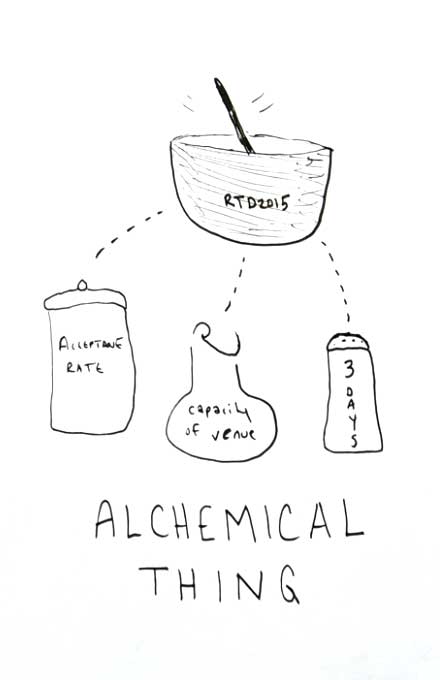 RTD2015
ACCEPTANE
RATE
capacity
of venue
3
D
A
Y
S
ALCHEMICAL
THING